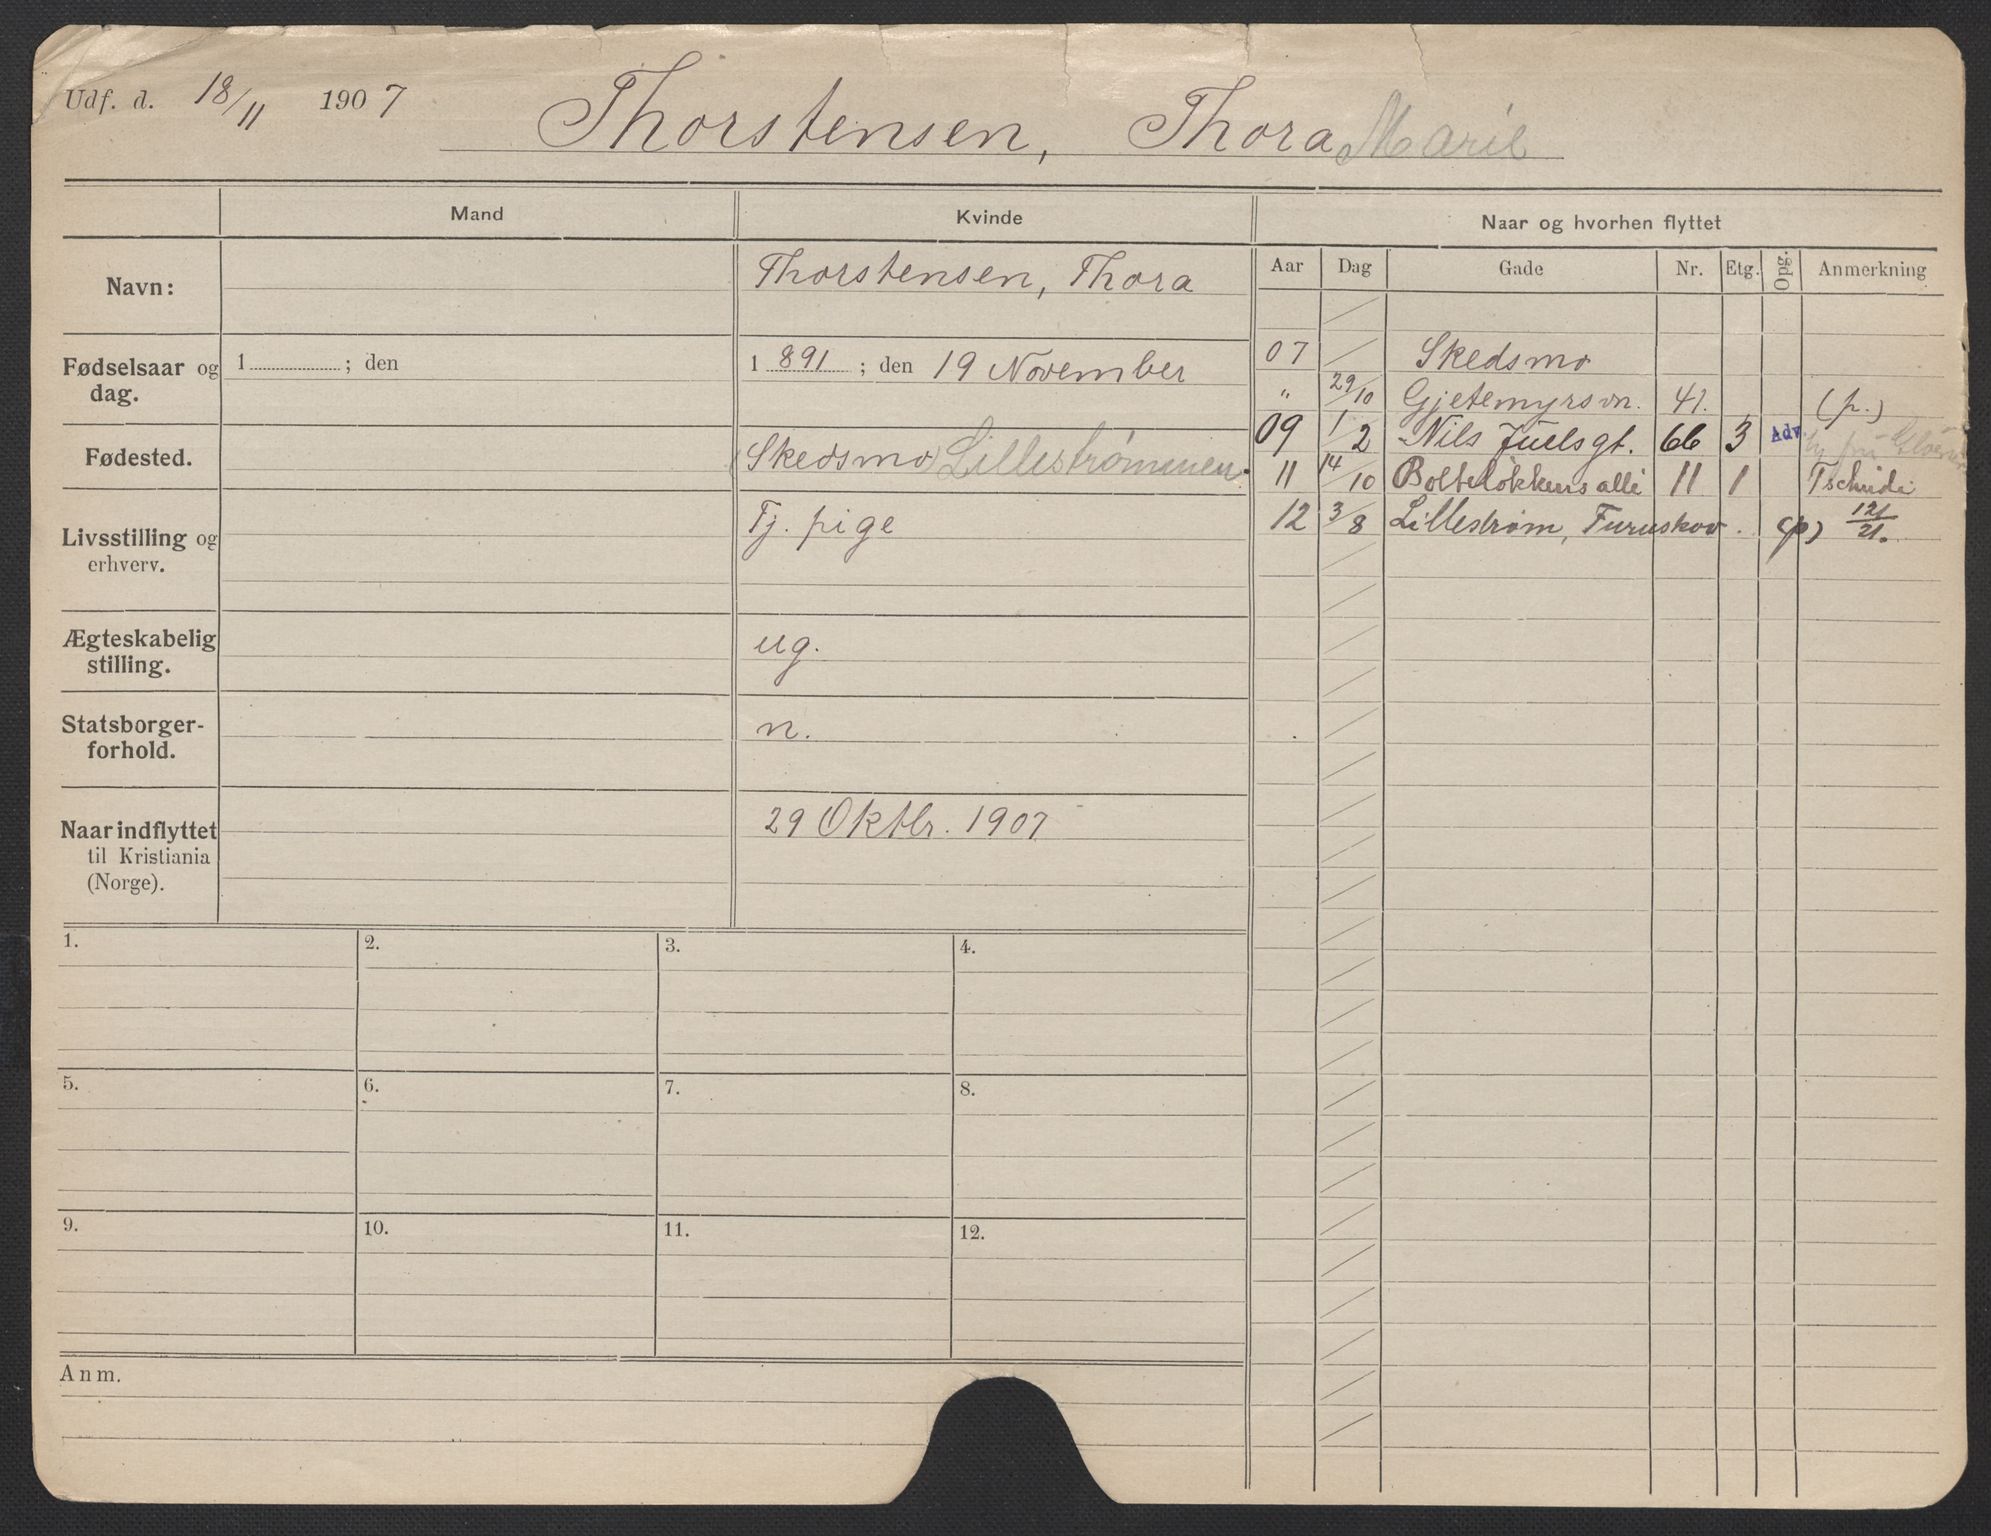 Udf. d. 18/11 1907 Thorstensen, Thora Marie
Mand Kvinde Naar og hvorhen flyttet
Aar Dag Gade Nr. Etg. Opg. Anmerkning
Navn: Thorstensen, Thora
Fødselsaar og 1 ; den 1 891 ; den 19 November
dag.
Fødested. (Skedsmo) Lillestrømmen.
Livsstilling og Tj. pige
erhverv.
Ægteskabelig ug.
stilling.
Statsborger- n.
forhold.
Naar indflyttet 29 Oktbr. 1907
til Kristiania
(Norge).
07 Skedsmo
" 29/10 Gjetemyrsvn. 41. (p.)
09 1/2 Nils Juelsgt. 66 3 Adv.
11 14/10 Bolteløkkens allé 11 1 Tschudi
12 3/8 Lillestrøm, Furuskov. (p) 121/21.
1. 2. 3. 4.
5. 6. 7. 8.
9. 10. 11. 12.
Anm.